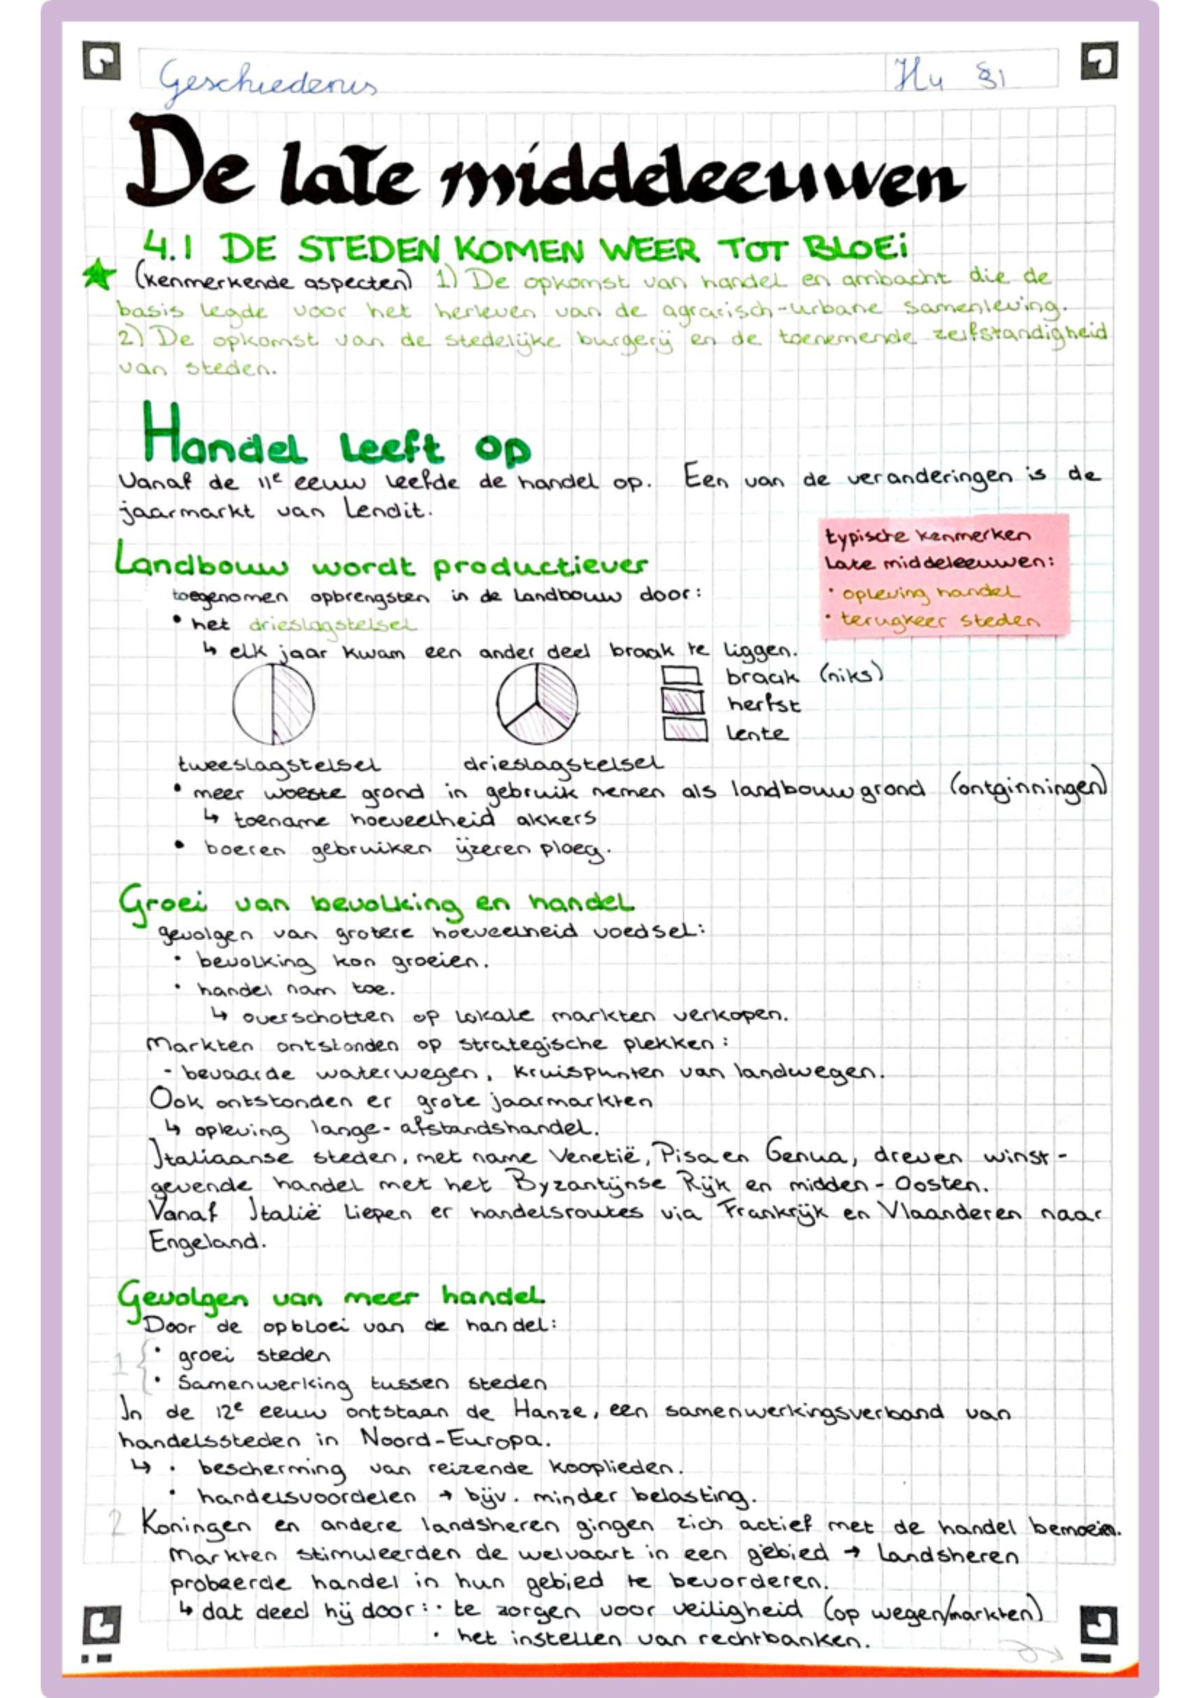 Geschiedenis
H4 §1
De late middeleeuwen
4.1 DE STEDEN KOMEN WEER TOT BLOEi
(kenmerkende aspecten) 1) De opkomst van handel en ambacht die de
basis legde voor het herleven van de agrarisch-urbane samenleving.
2) De opkomst van de stedelijke burgerij en de toenemende zelfstandigheid
van steden.
Handel leeft op
Vanaf de 11e eeuw leefde de handel op. Een van de veranderingen is de
jaarmarkt van Lendit.
typische kenmerken
late middeleeuwen:
• opleving handel
• terugkeer steden
Landbouw wordt productiever
toegenomen opbrengsten in de landbouw door:
• het drieslagstelsel
↳ elk jaar kwam een ander deel braak te liggen.
braak (niks)
herfst
lente
tweeslagstelsel drieslagstelsel
• meer woeste grond in gebruik nemen als landbouwgrond (ontginningen)
↳ toename hoeveelheid akkers
• boeren gebruiken ijzeren ploeg.
Groei van bevolking en handel
gevolgen van grotere hoeveelheid voedsel:
• bevolking kon groeien.
• handel nam toe.
↳ overschotten op lokale markten verkopen.
Markten ontstonden op strategische plekken:
- bevaarde waterwegen, kruispunten van landwegen.
Ook ontstonden er grote jaarmarkten
↳ opleving lange-afstandshandel.
Italiaanse steden, met name Venetië, Pisa en Genua, dreven winst-
gevende handel met het Byzantijnse Rijk en midden-Oosten.
Vanaf Italië liepen er handelsroutes via Frankrijk en Vlaanderen naar
Engeland.
Gevolgen van meer handel
Door de opbloei van de handel:
1 { • groei steden
• Samenwerking tussen steden
In de 12e eeuw ontstaan de Hanze, een samenwerkingsverband van
handelssteden in Noord-Europa.
↳ • bescherming van reizende kooplieden.
• handelsvoordelen → bijv. minder belasting.
2 Koningen en andere landsheren gingen zich actief met de handel bemoein.
Markten stimuleerden de welvaart in een gebied → Landsheren
probeerde handel in hun gebied te bevorderen.
↳ dat deed hij door: • te zorgen voor veiligheid (op wegen/markten)
• het instellen van rechtbanken.